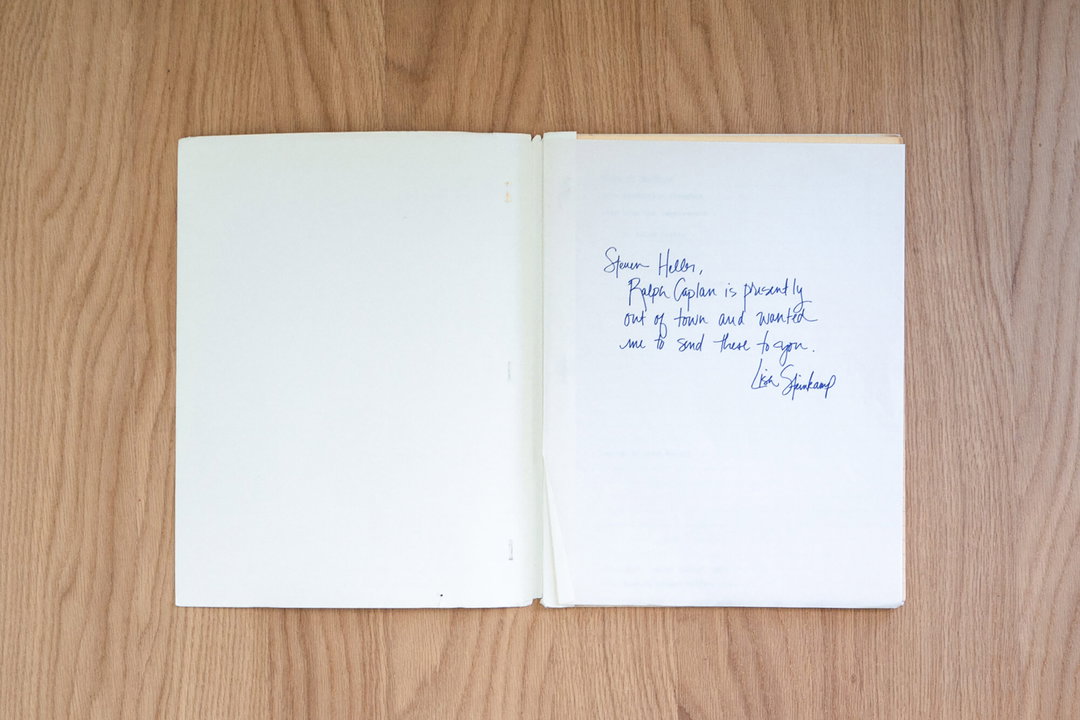 Steven Heller,
Ralph Caplan is presently
out of town and wanted
me to send these to you.
Lisa Steinkamp